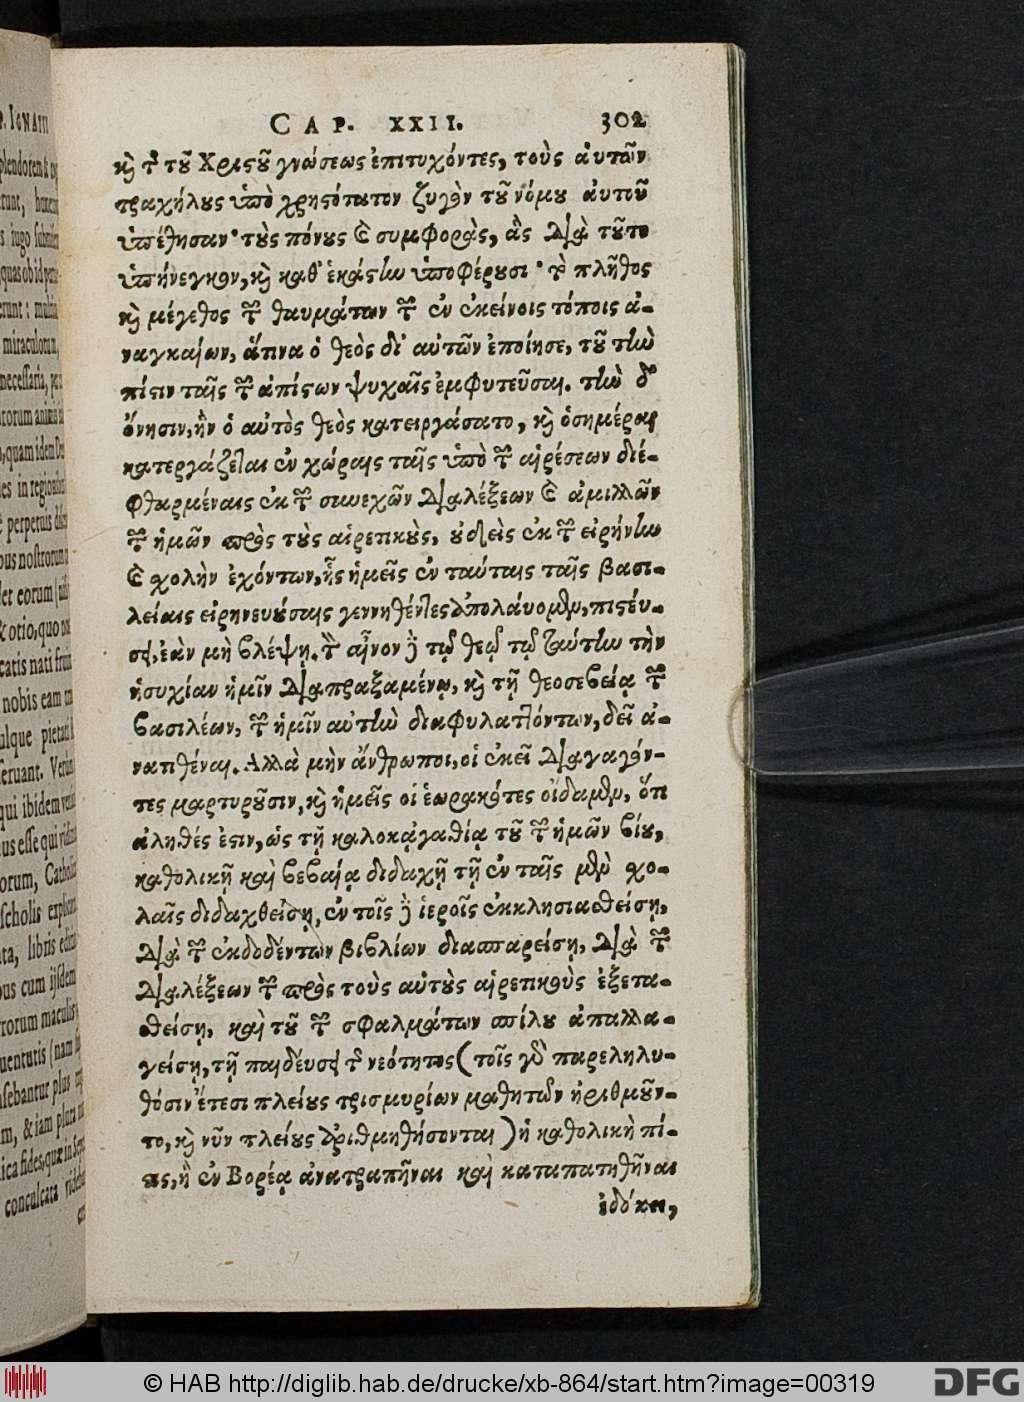 P. IGNATII
CAP. XXII. 302
καὶ τῆς τοῦ Χριστοῦ γνώσεως ἐπιτυχόντες, τοὺς αὐτῶν
τραχήλους ὑπὸ χρηστότατον ζυγὸν τοῦ νόμου αὐτοῦ
ὑπέθησαν· τὺς πόνους καὶ συμφορὰς, ἃς διὰ τοῦτο
ὑπήνεγκαν, καὶ καθ' ἑκάστην ὑποφέρουσι· τὸ πλῆθος
καὶ μέγεθος τῶν θαυμάτων τῶν ἐν ἐκείνοις τόποις ἀ-
ναγκαίων, ἅτινα ὁ θεὸς δι' αὐτῶν ἐποίησε, τοῦ τὴν
πίστιν ταῖς τῶν ἀπίστων ψυχαῖς ἐμφυτεῦσαι. τὴν δὲ
ὄνησιν, ἣν ὁ αὐτὸς θεὸς κατειργάσατο, καὶ ὁσημέραι
κατεργάζεται ἐν χώραις ταῖς ὑπὸ τῶν αἱρέσεων διε-
φθαρμέναις ἐκ τῶν συνεχῶν διαλέξεων καὶ ἁμιλλῶν
τῶν ἡμῶν πρὸς τοὺς αἱρετικοὺς, οὐδεὶς ἐκ τῶν εἰρήνην
καὶ σχολὴν ἐχόντων, ἧς ἡμεῖς ἐν ταύταις ταῖς βασι-
λείαις εἰρηνευούσαις γεννηθέντες ἀπολαύομεν, πιστεύ-
σει, ἐὰν μὴ βλέψῃ. τὸν αἶνον δὲ τῷ θεῷ τῷ ταύτην τὴν
ἡσυχίαν ἡμῖν διαπραξαμένῳ, καὶ τῇ θεοσεβείᾳ τῶν
βασιλέων, τῶν ἡμῖν αὐτὴν διαφυλαττόντων, δεῖ ἀ-
νατιθέναι. Ἀλλὰ μὴν ἄνθρωποι, οἱ ἐκεῖ διαγαγόν-
τες μαρτυροῦσιν, καὶ ἡμεῖς οἱ ἑωρακότες οἴδαμεν, ὅτι
ἀληθές ἐστιν, ὡς τῇ καλοκἀγαθίᾳ τοῦ τῶν ἡμῶν βίου,
καθολικῇ καὶ βεβαίᾳ διδαχῇ τῇ ἐν ταῖς μὲν σχο-
λαῖς διδαχθείσῃ, ἐν τοῖς δὲ ἱεροῖς ἐκκλησιασθείσῃ,
διὰ τῶν ἐκδοδέντων βιβλίων διασπαρείσῃ, διὰ τῶν
διαλέξεων τῶν πρὸς τοὺς αὐτοὺς αἱρετικοὺς ἐξετα-
σθείσῃ, καὶ τοῦ τῶν σφαλμάτων σπίλου ἀπαλλα-
γείσῃ, τῇ παιδεύσει τῆς νεότητος (τοῖς γὰρ παρεληλυ-
θόσιν ἔτεσι πλείους τρισμυρίων μαθητῶν ἠριθμοῦν-
το, καὶ νῦν πλείους ἀριθμηθήσονται) ἡ καθολικὴ πί-
στις, ἣ ἐν Βορέᾳ ἀνατραπῆναι καὶ καταπατηθῆναι
ἐδόκει,
© HAB http://diglib.hab.de/drucke/xb-864/start.htm?image=00319
DFG